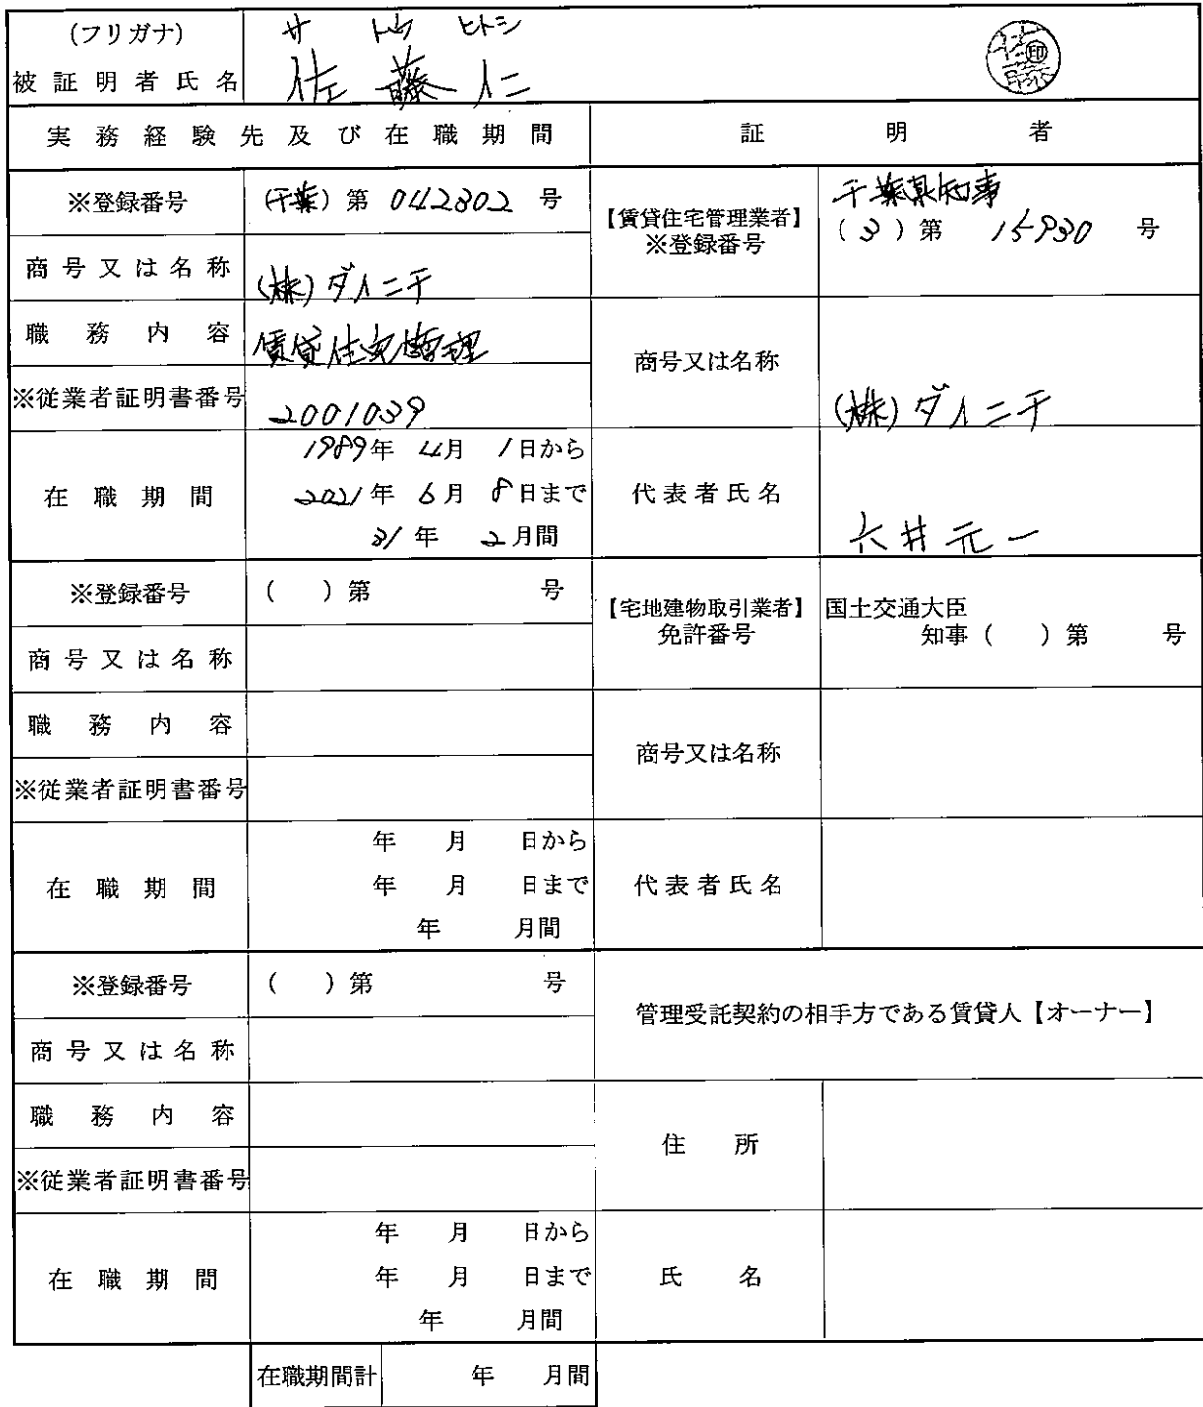 (フリガナ) サトウ ヒトシ
被証明者氏名 佐藤仁 印
実務経験先及び在職期間 証明者
※登録番号 (千葉)第 042302 号
【賃貸住宅管理業者】
※登録番号
千葉県知事
(3)第 15930 号
商号又は名称 (株)ダイニチ
職務内容 賃貸住宅管理
商号又は名称 (株)ダイニチ
※従業者証明書番号 2001039
在職期間
1989年 4月 1日から
2021年 6月 8日まで
31年 2月間
代表者氏名 六井元一
※登録番号 ( )第 号
【宅地建物取引業者】
免許番号
国土交通大臣
知事( )第 号
商号又は名称
職務内容
商号又は名称
※従業者証明書番号
在職期間
年 月 日から
年 月 日まで
年 月間
代表者氏名
※登録番号 ( )第 号
管理受託契約の相手方である賃貸人【オーナー】
商号又は名称
職務内容
住所
※従業者証明書番号
在職期間
年 月 日から
年 月 日まで
年 月間
氏名
在職期間計 年 月間